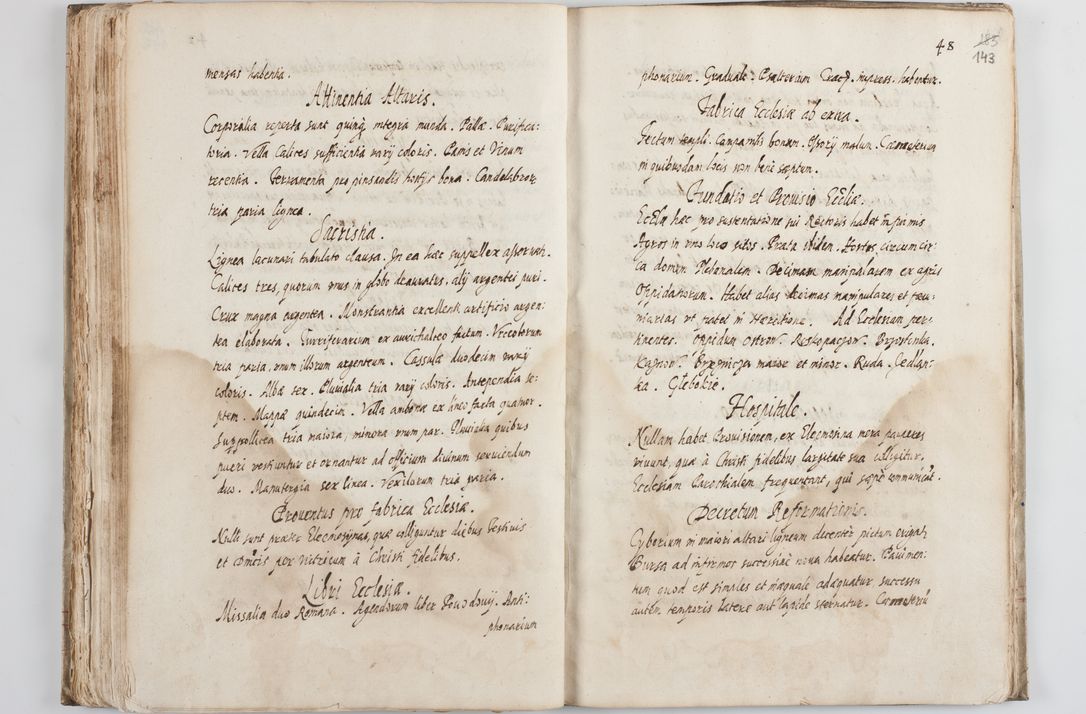 mensas habentia.
Attinentia Altaris.
Corporalia reperta sunt quinq integra munda. Pallæ. Purifica:
toria. Vella Calices sufficientia varij coloris. Panis et Vinum
recentia. Ferramenta pro pinsandis hostijs bona. Candelabror
tria paria lignea.
Sacristia.
Lignea lacunari tabulato clausa. In ea hæc supellex asservat.
Calices tres, quorum vnus in globo deauratus, alij argentei puri.
Crux magna argentea. Monstrantia excellenti artificio argen:
tea elaborata. Turriferarium ex aurichalco factum. Vrceolorum
tria paria, vnum illorum argenteum. Casulæ duodecim varij
coloris. Albæ sex. Pluvialia tria varij coloris. Antependia se:
ptem. Mappæ quindecim. Vella ambonæ ex lineo facta quatuor.
Suppellicea tria maiora, minora vnum par. Pluvialia quibus
pueri vestiuntur et ornantur ad officium diuinum seruiendum
duo. Manutergia sex linea. Vexillorum tria paria.
Prouentus pro fabrica Ecclesiæ.
Nulli sunt præter Eleemosynas, quæ colliguntur diebus Festiuis
et Dnicis per vitricum à Christi fidelibus.
Libri Ecclesiæ.
Missalia duo Romana. Agendorum liber Powodowij. Anti:
phonarium
48
185
143
phonarium. Graduale. Psalterium Crac. impress. habentur.
Fabrica Ecclesiæ ab extra.
Tectum templi. Campanilis bonum. Ossorij malum. Cæmeterium
in quibusdam locis non bene septum.
Fundatio et Prouisio Eccliæ.
Eccla hæc pro sustentatione sui Rectoris habet in primis
Agros in vno loco sitos. Prata ibidem. Hortos circum cir:
ca domum Plebanalem. Decimam manipularem ex agris
Oppidanorum. Habet alias decimas manipulares et pecu:
niarias vt patet in . Ad Ecclesiam per:
tinentes. Oppidum Ostrow.
maior et minor. Ruda. Cedlan:
ka. Glebokie.
Hospitale.
Nullam habet Prouisionem, ex Eleemosina mera pauperes
viuunt, quæ à Christi fidelibus largitate sua colligitur.
Ecclesiam Parochialem frequentant, qui sæpe communicāt.
Decretum Reformationis.
Cyborium in maiori altari ligneum decenter pictum erigat.
Bursa ad infirmos successiue noua habeatur. Pauimen:
tum quod est simales et inæquale adæquatur successu
autem temporis latere aut lapide sternatur. Cæmeteriū